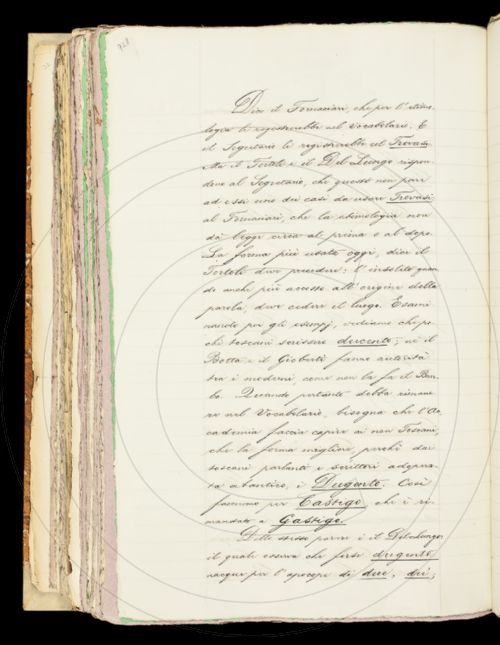 928
Dice il Fornaciari, che per l'etimo-
logia li registrerebbe nel Vocabolario. E
il Segretario li registrerebbe col Trovasi.
Ma il Tortoli e il Del Lungo rispon-
dono al Segretario, che questo non pare
ad essi uno dei casi da usare Trovasi;
al Fornaciari, che la etimologia non
dà legge circa al prima e al dopo.
La forma più usata oggi, dice il
Tortoli deve precedere: l'insolita quan-
do anche più accosto all'origine della
parola, deve cedere il luogo. Esami-
nando poi gli esempj, vediamo che po-
chi toscani scrissero ducento; nè il
Botta e il Gioberti fanno autorità
tra i moderni come non la fa il Bem-
bo. Quando pertanto debba rimane-
re nel Vocabolario, bisogna che l'Ac-
cademia faccia capire ai non Toscani,
che la forma migliore, perchè dai
toscani parlanti e scrittori adopra-
ta ab antico, è Dugento. Così
facemmo per Castigo, che è ri-
mandato a Gastigo.
Dello stesso parere è il Del Lungo,
il quale osserva che forse dugento
nacque per l'apocope di due, du';